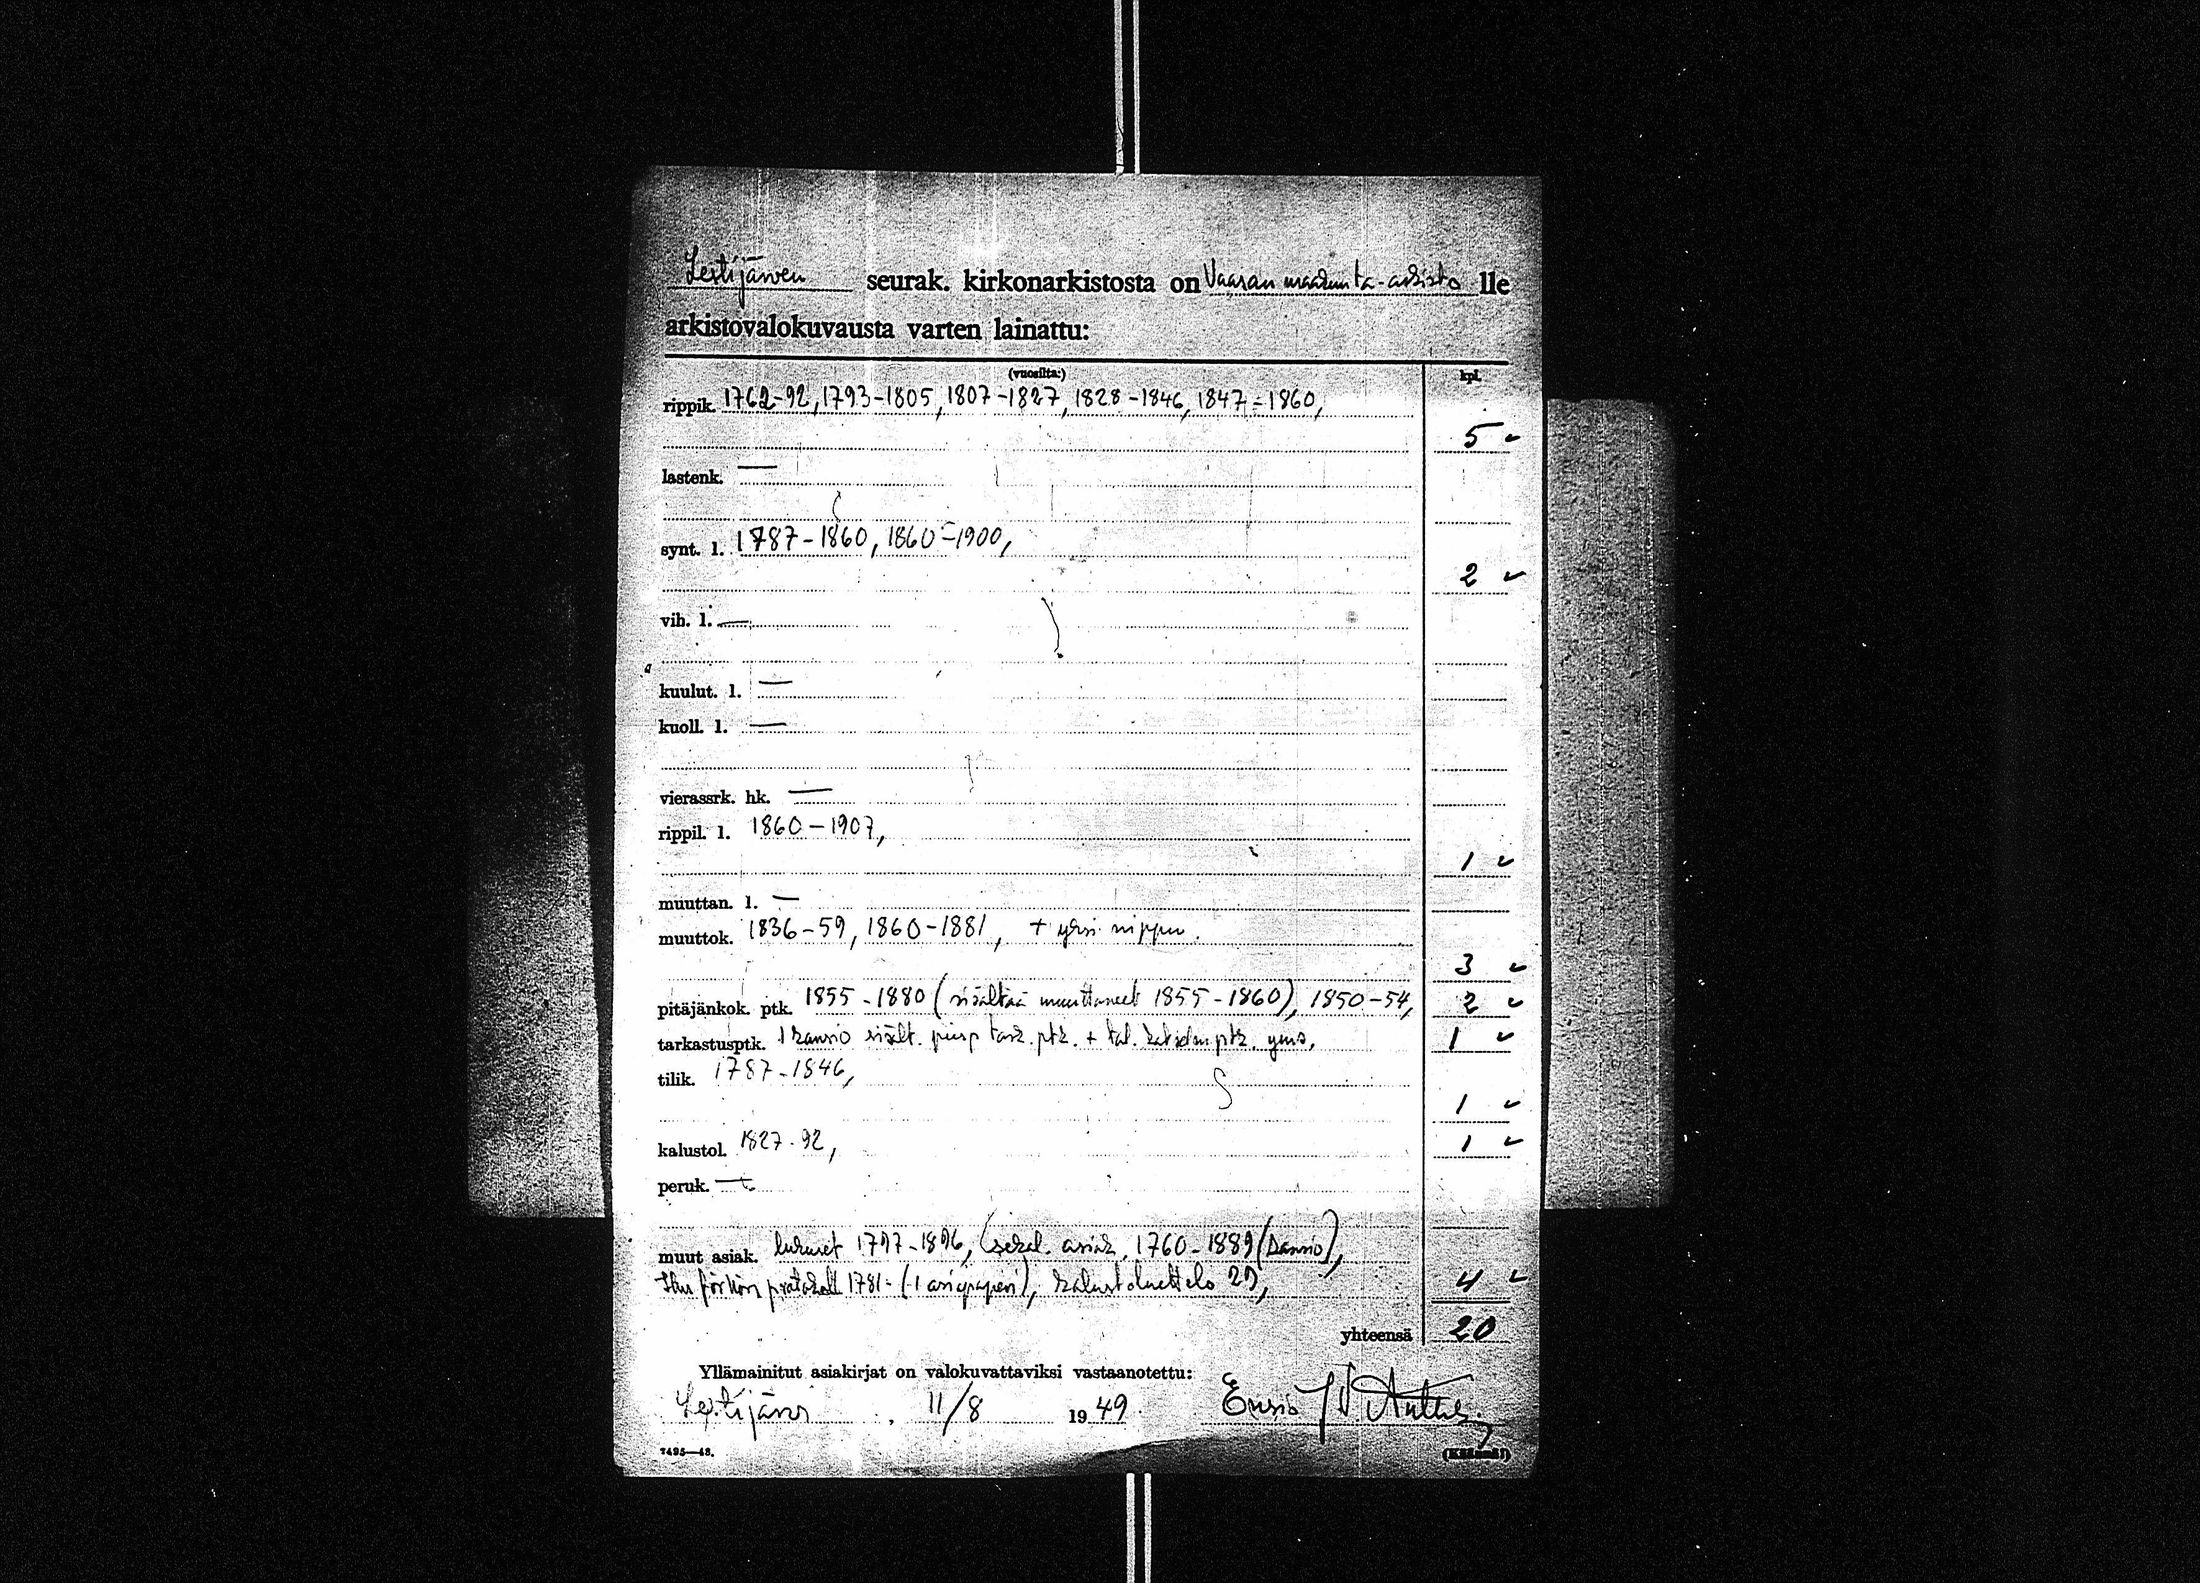 Lestijärven seurak. kirkonarkistosta on Vaasan maakunta-arkisto lle
arkistovalokuvausta varten lainattu:
(vuosilta:) kpl.
rippik. 1762-92, 1793-1805, 1807-1827, 1828-1846, 1847-1860,
5 ✓
lastenk. —
synt. l. 1787-1860, 1860-1900,
2 ✓
vih. l. —
kuulut. l. —
kuoll. l. —
vierassrk. hk. —
rippil. l. 1860-1907,
1 ✓
muuttan. l. —
muuttok. 1836-59, 1860-1881, + yksi nippu.
3 ✓
pitäjänkok. ptk. 1855-1880 (sisältää muuttaneet 1855-1860), 1850-54, 2 ✓
tarkastusptk. 1 kansio sisält. piisp. tark. ptk. + tal. katselm. ptk. yms. 1 ✓
tilik. 1787-1846,
1 ✓
kalustol. 1827-92, 1 ✓
peruk. —
muut asiak. 1760-1889 (kansio),
protokoll 1781- (1 arkipaperi), kalustoluettelo 4 ✓
yhteensä 20
Yllämainitut asiakirjat on valokuvattaviksi vastaanotettu:
Lestijärvi, 11/8 1949 Ensio
7495—48. (Käännä!)